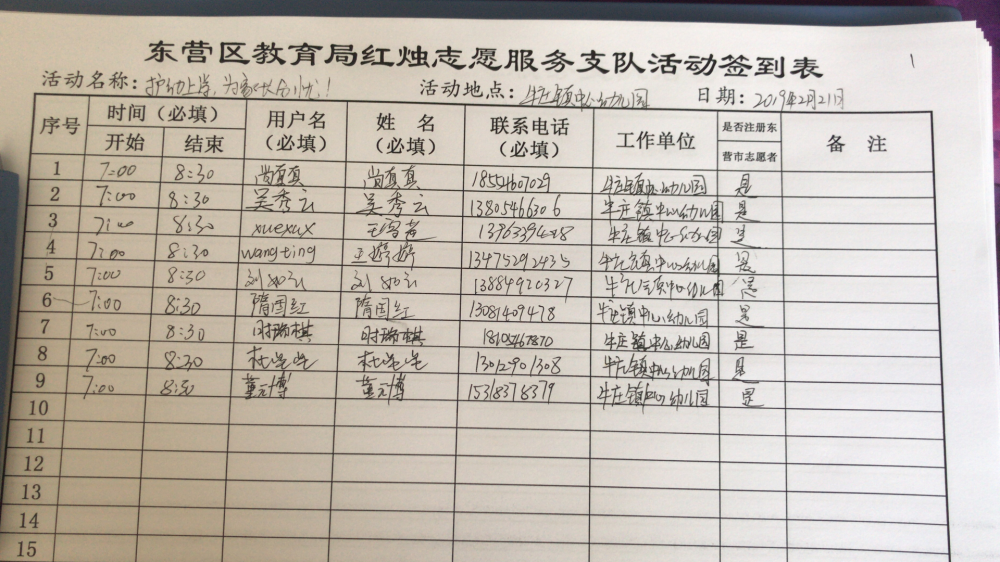 1
东营区教育局红烛志愿服务支队活动签到表
活动名称: 护幼上学,为家长 活动地点: 牛庄镇中心幼儿园 日期: 2019年2月21日
序号 时间(必填) 开始 结束 用户名(必填) 姓名(必填) 联系电话(必填) 工作单位 是否注册东营市志愿者 备注
1 7:00 8:30 尚真真 尚真真 18554607029 牛庄镇中心幼儿园 是
2 7:00 8:30 吴秀云 吴秀云 13805466306 牛庄镇中心幼儿园 是
3 7:00 8:30 xuexux 牛庄镇中心幼儿园 是
4 7:00 8:30 wangting 王婷婷 13475292435 牛庄镇中心幼儿园 是
5 7:00 8:30 刘如云 刘如云 13884920327 牛庄镇中心幼儿园 是
6 7:00 8:30 隋国红 隋国红 13081409478 牛庄镇中心幼儿园 是
7 7:00 8:30 时瑞棋 时瑞棋 18105467870 牛庄镇中心幼儿园 是
8 7:00 8:30 13012901308 牛庄镇中心幼儿园 是
9 7:00 8:30 董元博 董元博 15318378379 牛庄镇中心幼儿园 是
10
11
12
13
14
15